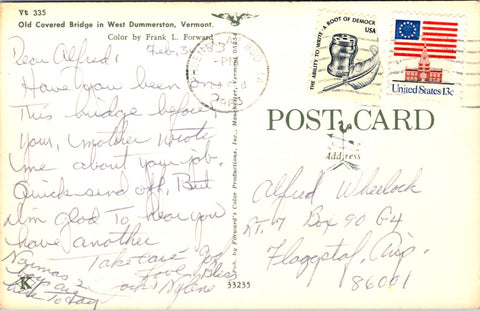 Vt 335
Old Covered Bridge in West Dummerston, Vermont.
Color by Frank L. Forward
Feb, 3
Dear Alfred,
Have you been on
This bridge before
Your, mother wrote
me about your job.
Quick send off, But
I'm glad To hear you
have another
Take care God
Love Bless
and
Normas 2
boys are
here Today
K
33235
by Forward's Color Productions, Inc., Manchester, Vermont 05254
PM
1983
THE ABILITY TO WRITE · A ROOT OF DEMOCR
USA
United States 13c
POST CARD
Address
Alfred Wheelock
Rt. 7 Box 90 G4
Flagstaf, Ariz.
86001